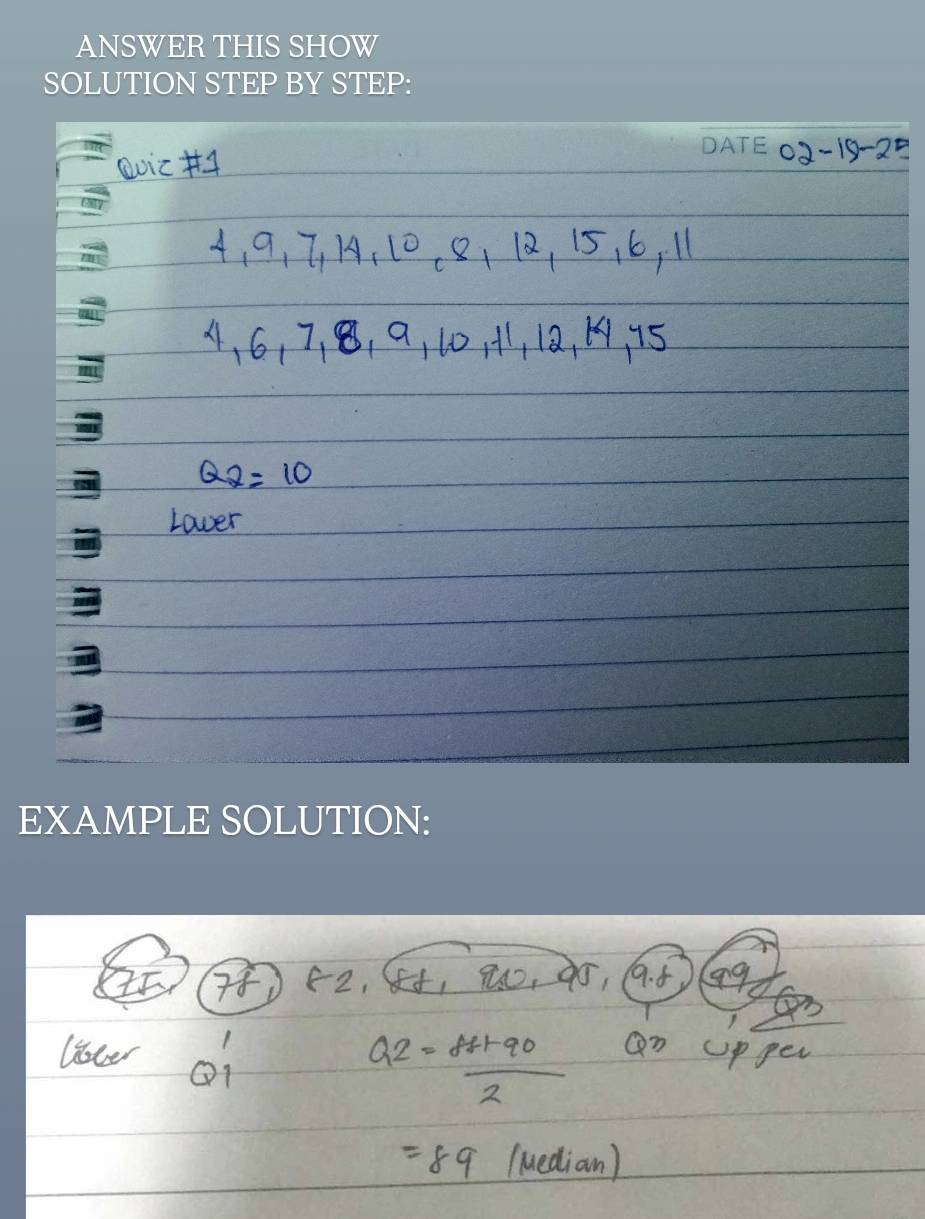 ANSWER THIS SHOW
SOLUTION STEP BY STEP:
Quiz #1
DATE 02-19-25
4, 9, 7, 14, 10, 8, 12, 15, 6, 11
4, 6, 7, 8, 9, 10, 11, 12, 14, 15
Q2 = 10
Lower
EXAMPLE SOLUTION:
75, 78, 82, 88, 90, 95, 98, 99
Q3
Q2 = 88+90
Q3 upper
Q1
2
= 89 (Median)